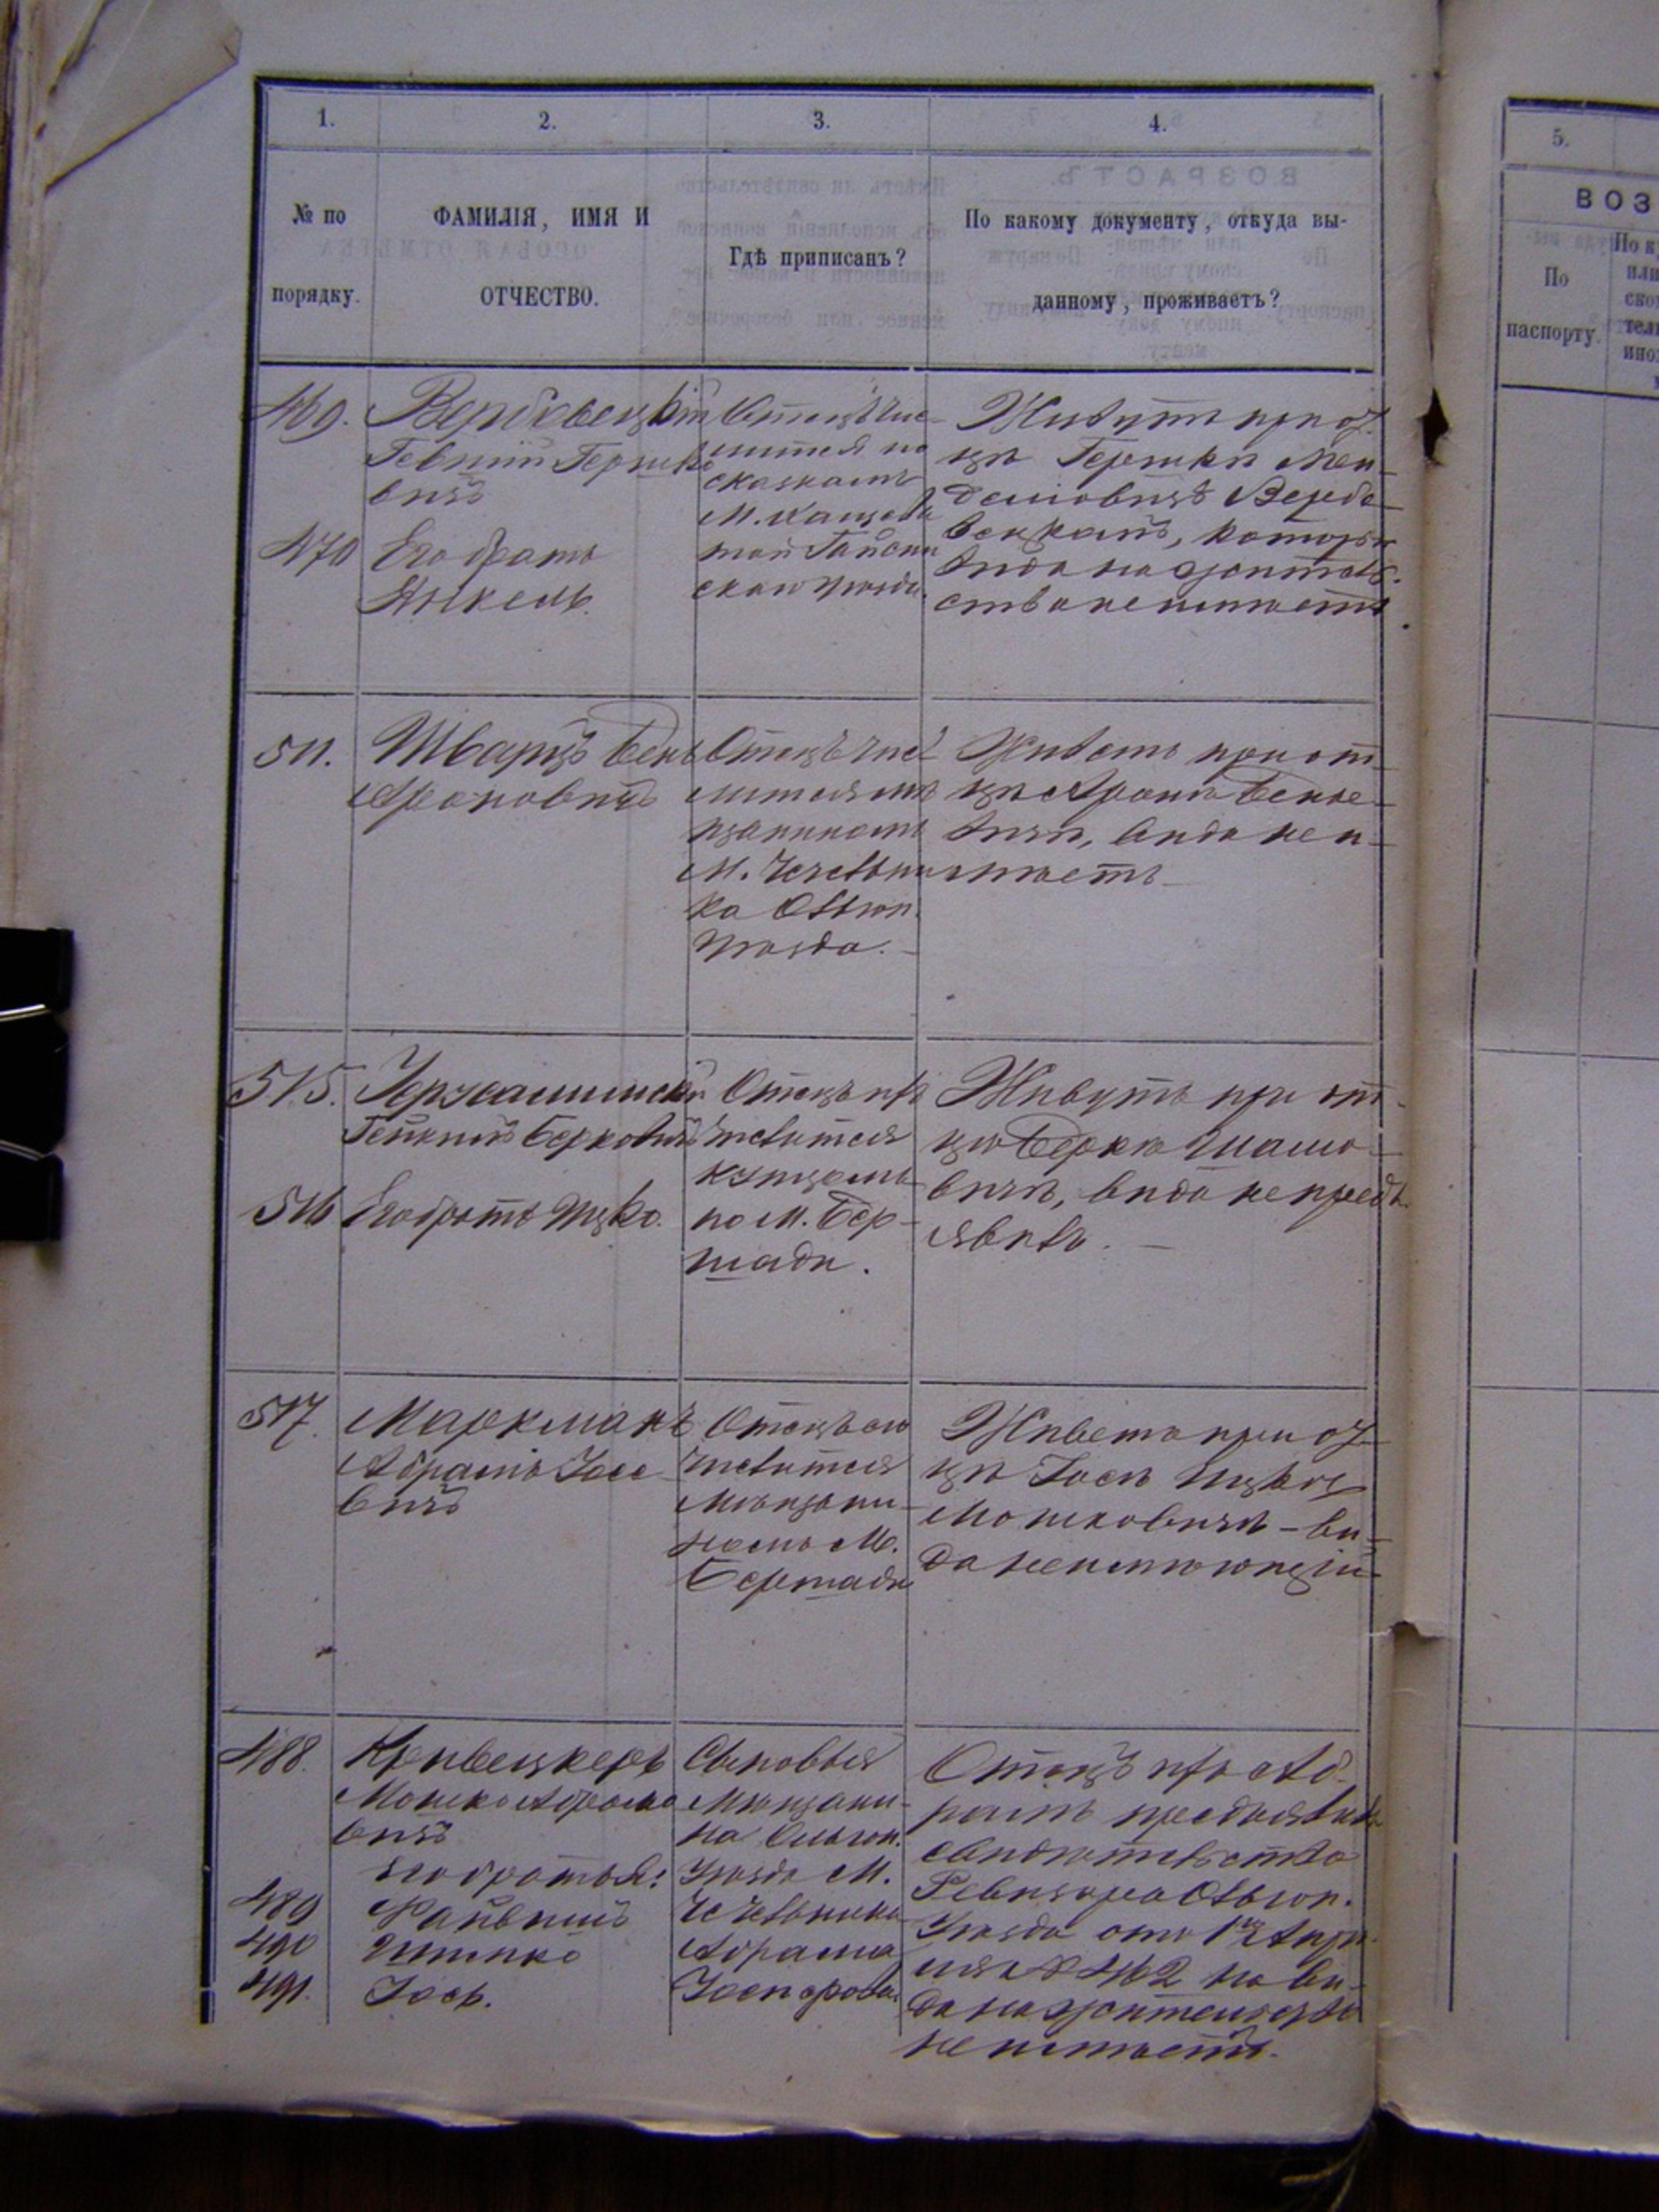 1.
2.
3.
4.
№ по
порядку.
ФАМИЛІЯ, ИМЯ И
ОТЧЕСТВО.
Гдѣ приписанъ?
По какому документу, откуда вы-
данному, проживаетъ?
469.
Вербовецкій
Гершко
вичъ
470
Его братъ
Янкель.
Отецъ чис
лится по
сказкамъ
М.
Гайсин
скаго уѣзда.
Живутъ при от
цѣ Гершкѣ Мен
делевичѣ Вербо
вецкомъ, который
вида на жительс
ство не имѣетъ
511.
Шварцъ Бень
Ароновичъ
Отецъ чис
лится мѣ
щаниномъ
М. Чечельни
ка Ольгоп.
уѣзда.
Живетъ при от
цѣ Аронѣ Бенье
вичѣ, вида не и
мѣетъ
515.
Беркович
516
Его братъ Ицко.
Отецъ ихъ
числится
купцомъ
по М. Бер-
шади.
Живутъ при от
цѣ Беркѣ Шмо
вичѣ, вида не предъ
явилъ.
517.
Маркманъ
Абрамъ Іосе
вичъ
Отецъ его
числится
мѣщани-
номъ М.
Бершади
Живетъ при от
цѣ Іосѣ Ицко
Мошковичѣ - ви-
да неимѣющій
488.
Кривецкеръ
Мошко Абрамо
вичъ
его братья:
489
Файвишъ
490
491.
Іось.
Сыновья
мѣщани-
на Ольгоп.
уѣзда М.
Чечельника
Абрама
Отецъ ихъ Аб-
рамъ предъявилъ
свидѣтельство
Ревизора Ольгоп.
уѣзда отъ 1го Апрѣ
ля № 462 но ви-
да на жительство
не имѣетъ.
5.
ВОЗ
По
паспорту.